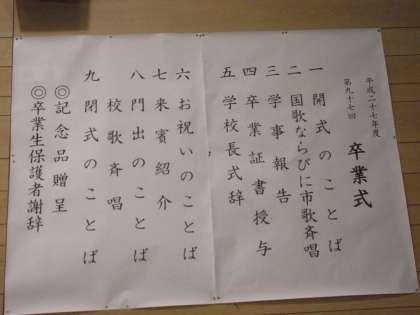 平成二十七年度
第九十七回
卒業式
一 開式のことば
二 国歌ならびに市歌斉唱
三 学事報告
四 卒業証書授与
五 学校長式辞
六 お祝いのことば
七 来賓紹介
八 門出のことば
校歌斉唱
九 閉式のことば
◎記念品贈呈
◎卒業生保護者謝辞